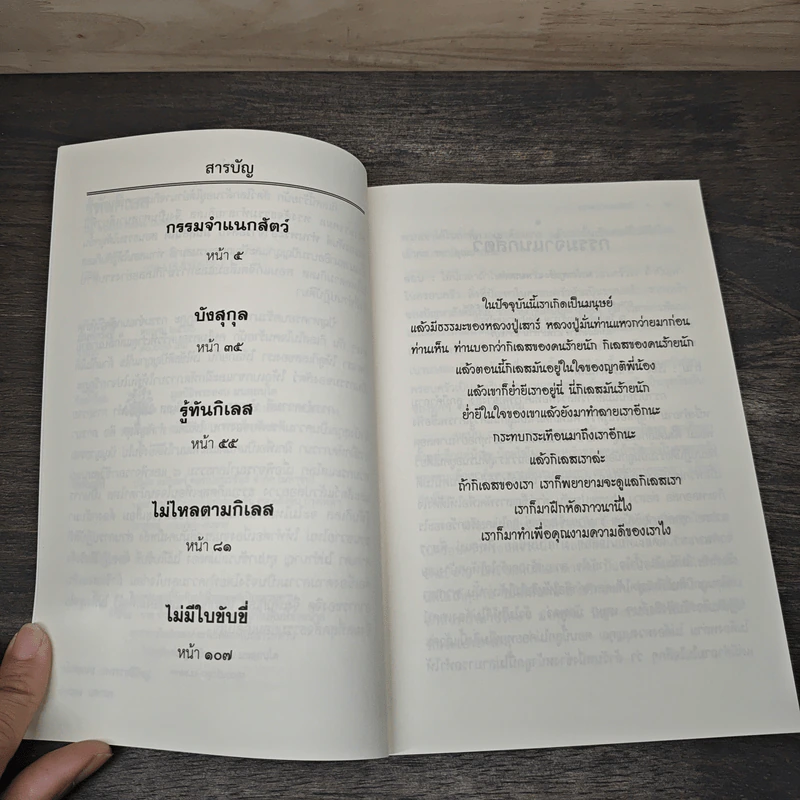 สารบัญ
กรรมจำแนกสัตว์
หน้า ๕
บังสุกุล
หน้า ๓๕
รู้ทันกิเลส
หน้า ๕๕
ไม่ไหลตามกิเลส
หน้า ๘๑
ไม่มีใบขับขี่
หน้า ๑๐๗
ในปัจจุบันนี้เราเกิดเป็นมนุษย์
แล้วมีธรรมะของหลวงปู่เสาร์ หลวงปู่มั่นท่านแหวกว่ายมาก่อน
ท่านเห็น ท่านบอกว่ากิเลสของคนร้ายนัก กิเลสของคนร้ายนัก
แล้วตอนนี้กิเลสมันอยู่ในใจของญาติพี่น้อง
แล้วเขาก็ย่ำยีเราอยู่นี่ นี่กิเลสมันร้ายนัก
ย่ำยีในใจของเขาแล้วยังมาทำลายเราอีกนะ
กระทบกระเทือนมาถึงเราอีกนะ
แล้วกิเลสเราล่ะ
ถ้ากิเลสของเรา เราก็พยายามจะดูแลกิเลสเรา
เราก็มาฝึกหัดภาวนานี้ไง
เราก็มาทำเพื่อคุณงามความดีของเราไง